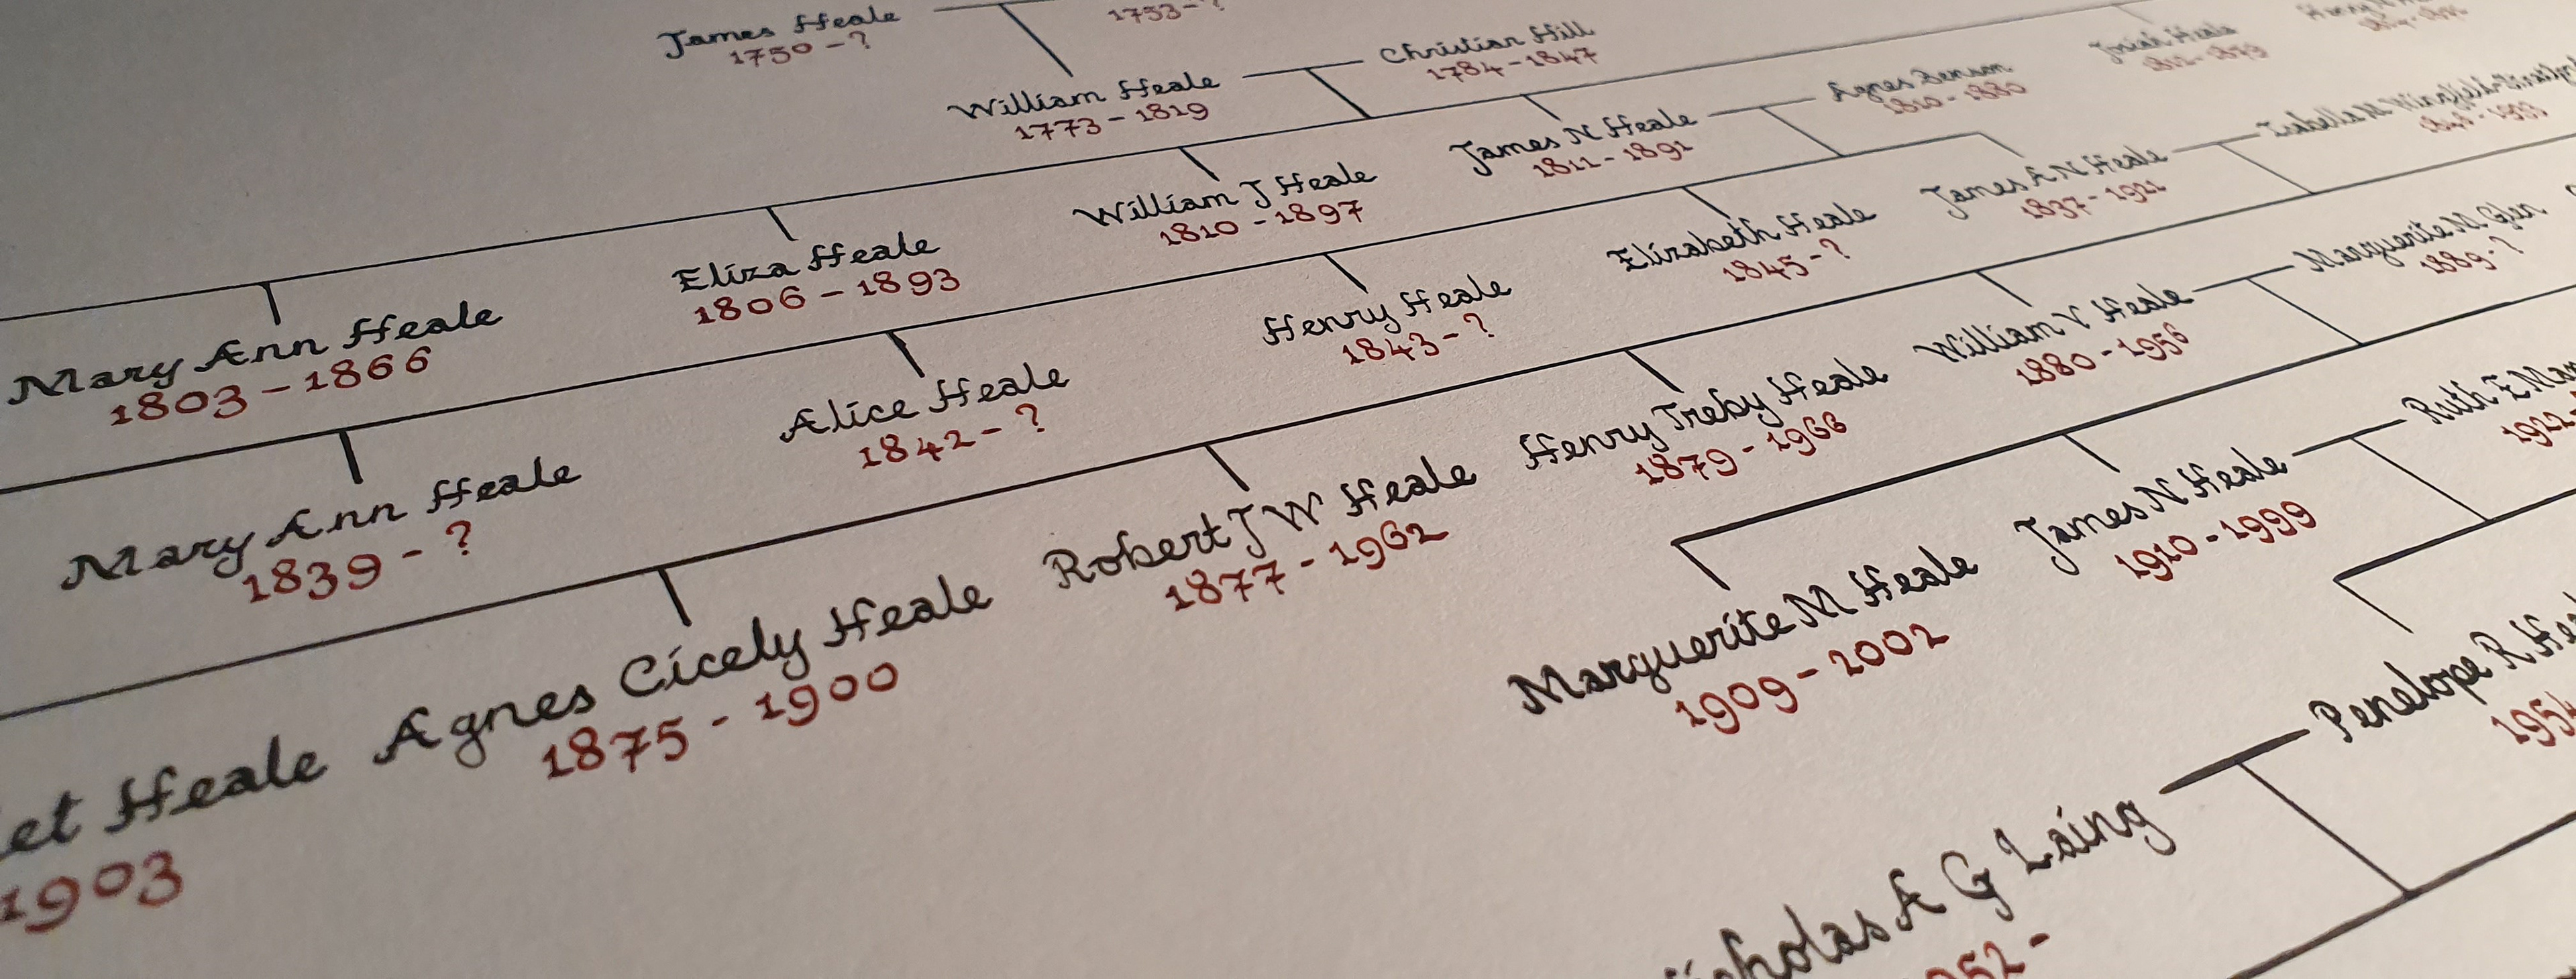 James Heale
1750 - ?
1753 - ?
William Heale
1773 - 1819
Christian Hill
1784 - 1847
Mary Ann Heale
1803 - 1866
Eliza Heale
1806 - 1893
William J Heale
1810 - 1897
James N Heale
1811 - 1891
Agnes Benson
1810 - 1880
Josiah Heale
Mary Ann Heale
1839 - ?
Alice Heale
1842 - ?
Henry Heale
1843 - ?
Elizabeth Heale
1845 - ?
James A N Heale
1837 - 1921
Isabella M
Heale
1903
Agnes Cicely Heale
1875 - 1900
Robert J W Heale
1877 - 1962
Henry Treby Heale
1879 - 1966
William V Heale
1880 - 1956
Marguerite M Glen
1889 - ?
Marguerite M Heale
1909 - 2002
James N Heale
1910 - 1999
Ruth E
1922
A G Laing
Penelope R